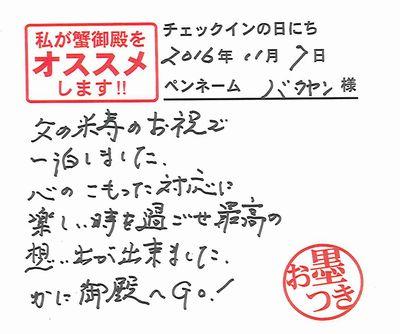 私が蟹御殿を
オススメ
します!!
チェックインの日にち
2016年11月7日
ペンネーム バクヤン 様
父の米寿のお祝で
一泊しました.
心のこもった対応に
楽しい時を過ごせ最高の
想い出が出来ました.
かに御殿へGO!
お墨つき